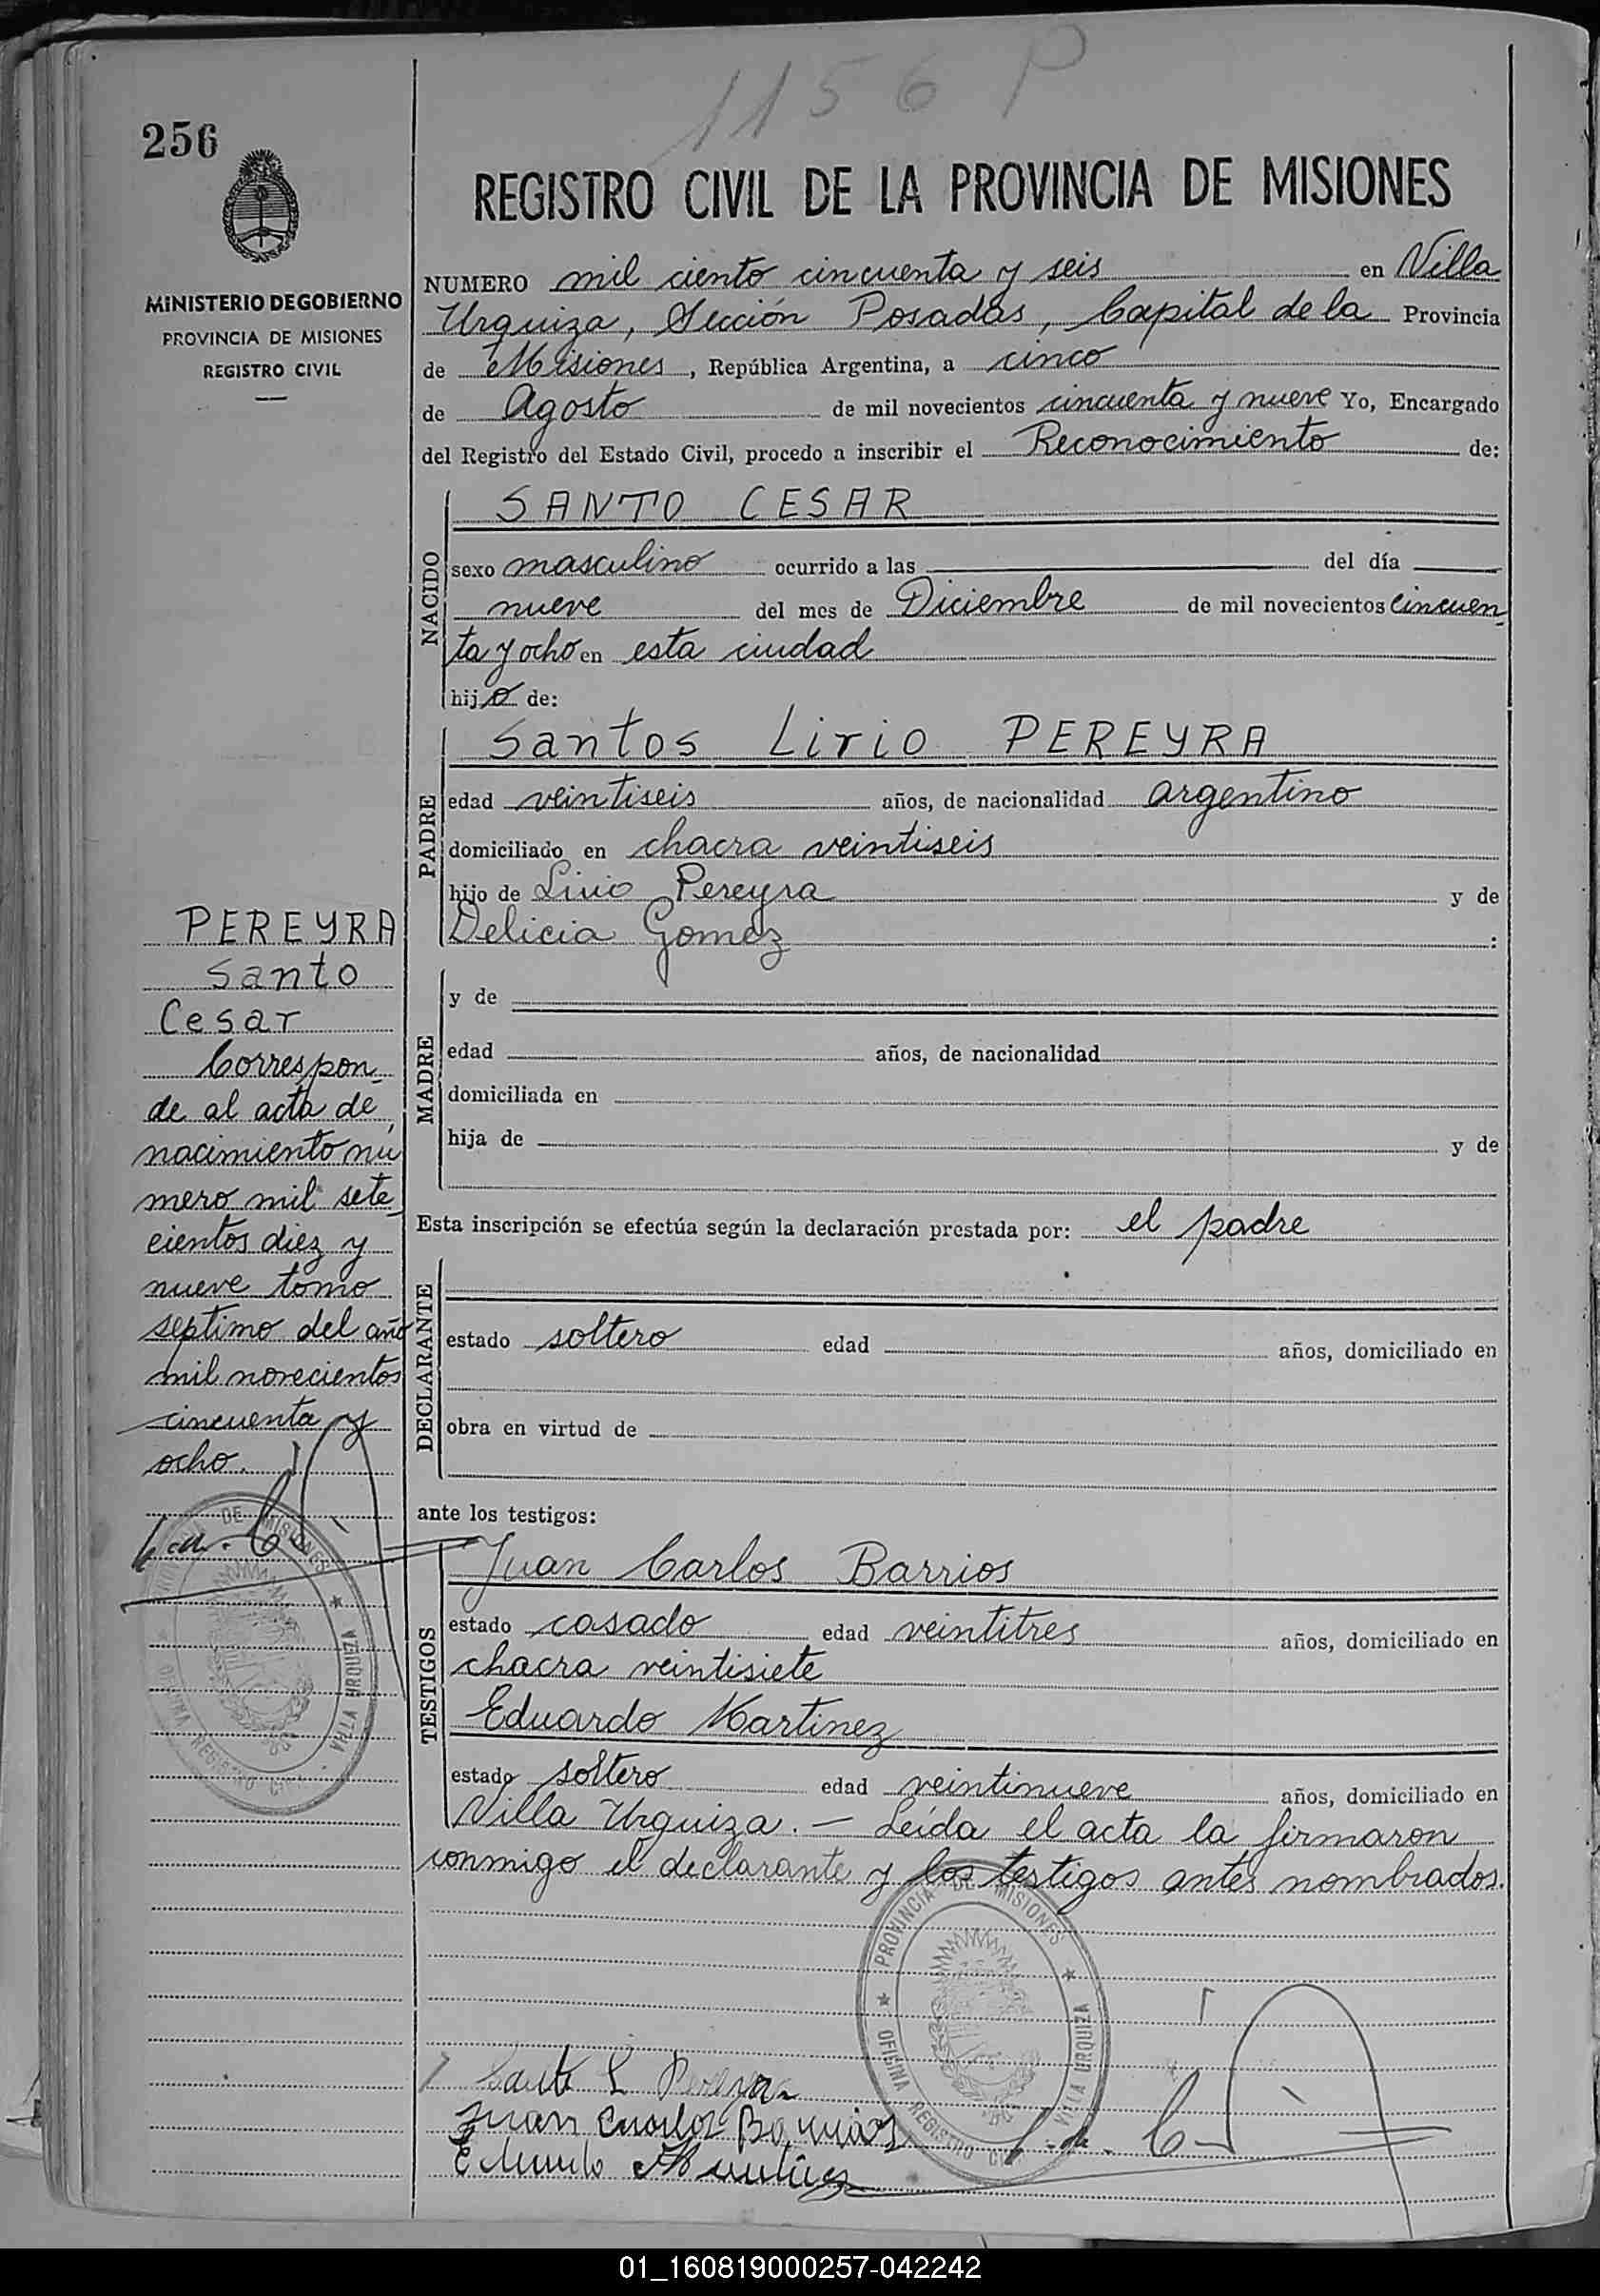 1156 P
256
MINISTERIO DE GOBIERNO
PROVINCIA DE MISIONES
REGISTRO CIVIL
REGISTRO CIVIL DE LA PROVINCIA DE MISIONES
NUMERO mil ciento cincuenta y seis en Villa
Urquiza, Sección Posadas, Capital de la Provincia
de Misiones, República Argentina, a cinco
de Agosto de mil novecientos cincuenta y nueve Yo, Encargado
del Registro del Estado Civil, procedo a inscribir el Reconocimiento de:
NACIDO
SANTO CESAR
sexo masculino ocurrido a las del día
nueve del mes de Diciembre de mil novecientos cincuen
ta y ocho en esta ciudad
hijo de:
PADRE
Santos Lirio PEREYRA
edad veintiseis años, de nacionalidad argentino
domiciliado en chacra veintiseis
hijo de Livio Pereyra y de
Delicia Gomez :
MADRE
y de
edad años, de nacionalidad
domiciliada en
hija de y de
Esta inscripción se efectúa según la declaración prestada por: el padre
DECLARANTE
estado soltero edad años, domiciliado en
obra en virtud de
ante los testigos:
TESTIGOS
Juan Carlos Barrios
estado casado edad veintitres años, domiciliado en
chacra veintisiete
Eduardo Martinez
estado soltero edad veintinueve años, domiciliado en
Villa Urquiza. — Leída el acta la firmaron
conmigo el declarante y los testigos antes nombrados.
PEREYRA
Santo
Cesar
Correspon-
de al acta de
nacimiento nú
mero mil sete
cientos diez y
nueve tomo
septimo del año
mil novecientos
cincuenta y
ocho.
DE MISIONES
VILLA URQUIZA
OFICINA REGISTRO
PROVINCIA DE MISIONES
VILLA URQUIZA
OFICINA REGISTRO
L Pereyra
Juan Carlos Barrios
01_160819000257-042242